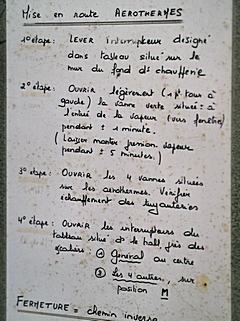 Mise en route AEROTHERMES
1° étape: LEVER interrupteur designé
dans tableau situé sur le
mur du fond de chaufferie
2° étape: OUVRIR légèrement (1 tour à
gauche) la vanne verte située à
l'entrée de la vapeur (vers fenêtre)
pendant ± 1 minute.
(Laisser monter pression vapeur
pendant ± 5 minutes.)
3° étape: OUVRIR les 4 vannes situées
sur les aerothermes. Vérifier
échauffement des tuyauteries
4° étape: OUVRIR les interrupteurs du
tableau situé ds le hall, près des
① Général au centre
② Les 4 autres, sur
position M
FERMETURE = chemin inverse